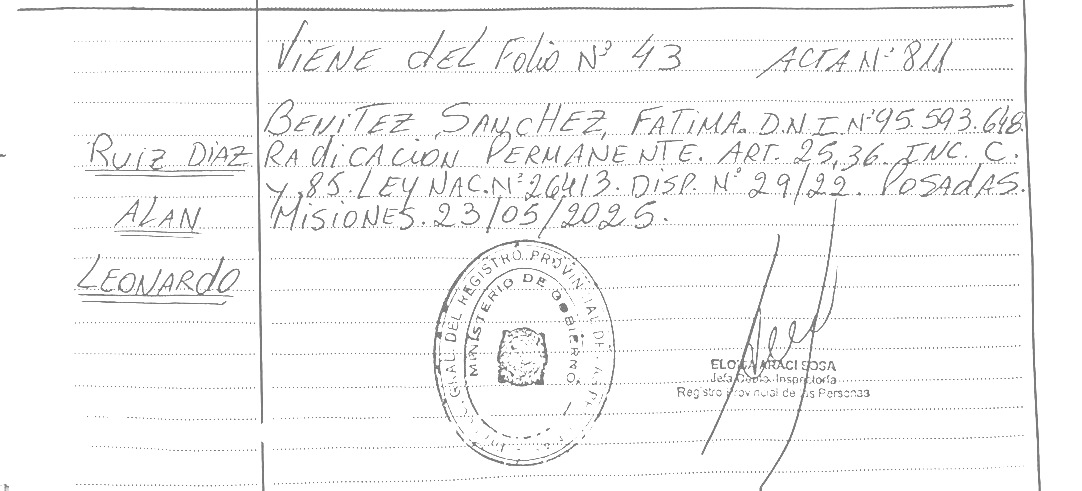 Viene del Folio Nº 43 Acta Nº 811
Benitez Sanchez, Fatima. D.N.I. Nº 95.593.648
Ruiz Diaz
Radicacion Permanente. Art. 25,36. Inc. C.
y 85. Ley Nac. Nº 26413. Disp. Nº 29/22. Posadas.
Alan
Misiones. 23/05/2025.
Leonardo
GRAL. DEL REGISTRO PROVINCIAL DE LAS PE
MINISTERIO DE GOBIERNO
ELOISA ARACI SOSA
Jefa Dpto. Inspectoría
Registro Provincial de las Personas